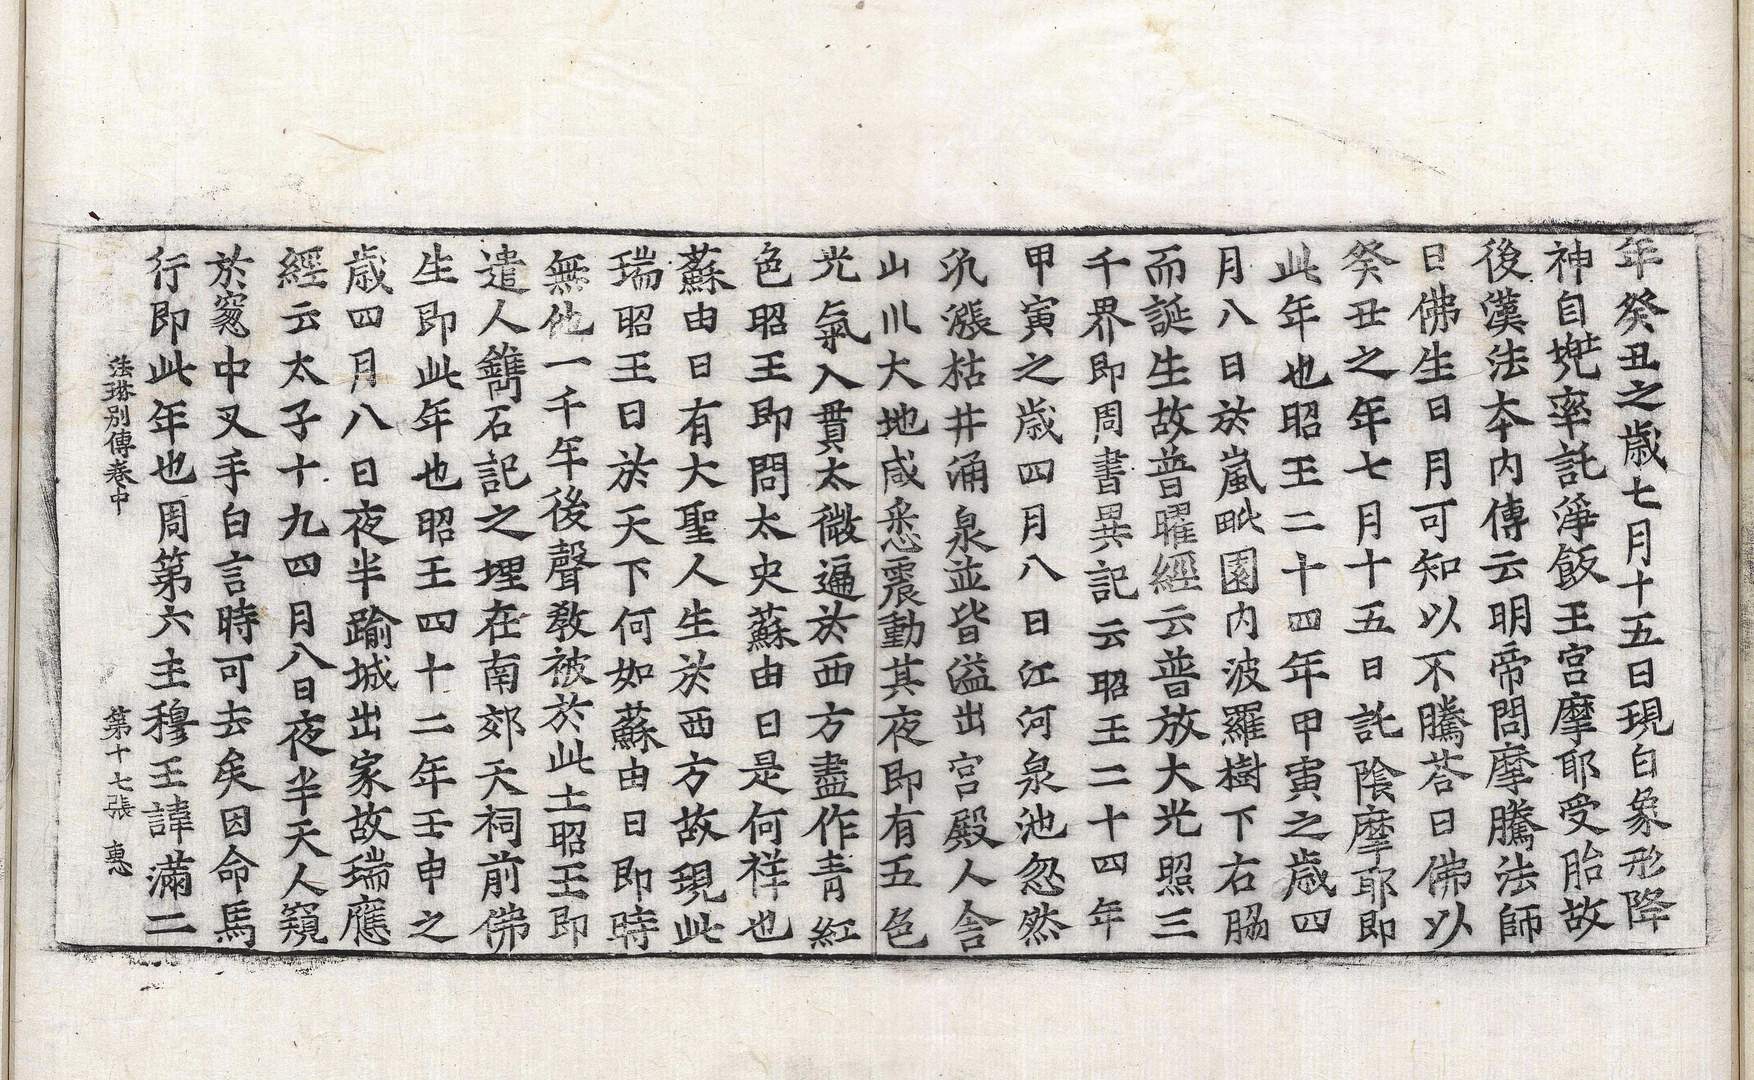 年癸丑之歲七月十五日現白象形降
神自兠率託淨飯王宮摩耶受胎故
後漢法本內傳云明帝問摩騰法師
曰佛生日月可知以不騰荅曰佛以
癸丑之年七月十五日託陰摩耶即
此年也昭王二十四年甲寅之歲四
月八日於嵐毗園內波羅樹下右脇
而誕生故普曜經云普放大光照三
千界即周書異記云昭王二十四年
甲寅之歲四月八日江河泉池忽然
汎漲枯井涌泉並皆溢出宮殿人舎
山川大地咸悉震動其夜即有五色
光氣入貫太微遍於西方盡作青紅
色昭王即問太史蘇由曰是何祥也
蘇由曰有大聖人生於西方故現此
瑞昭王曰於天下何如蘇由曰即時
無他一千年後聲敎被於此土昭王即
遣人鐫石記之埋在南郊天祠前佛
生即此年也昭王四十二年壬申之
歲四月八日夜半踰城出家故瑞應
經云太子十九四月八日夜半天人窺
於窓中叉手白言時可去矣因命馬
行即此年也周第六主穆王諱滿二
法琳別傳卷中 第十七張 惠